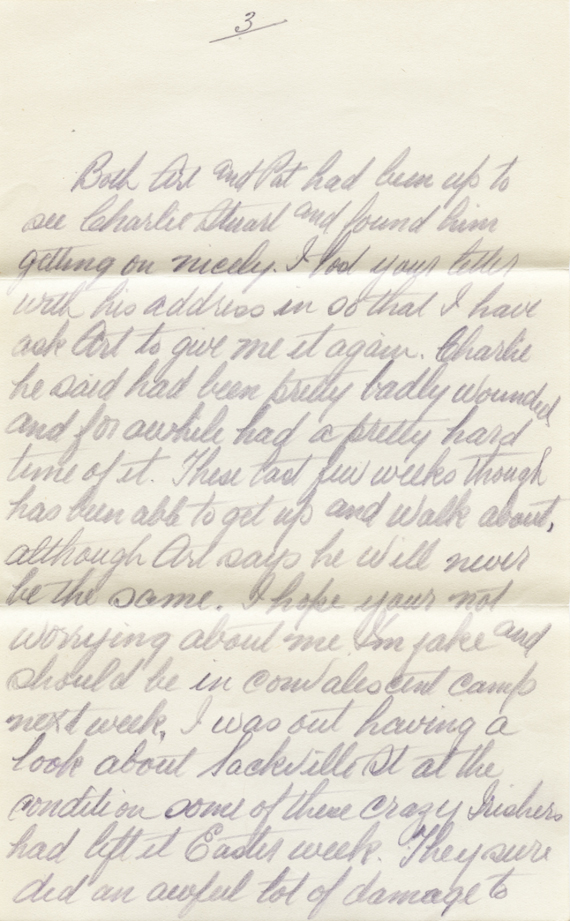 3
Both Art and Pat had been up to
see Charlie Stuart and found him
getting on nicely. I lost your letter
with his address in so that I have
ask Art to give me it again. Charlie
he said had been pretty badly wounded
and for awhile had a pretty hard
time of it. These last few weeks though
has been able to get up and walk about,
although Art says he will never
be the same. I hope your not
worrying about me. I'm jake and
should be in convalescent camp
next week. I was out having a
look about Sackville St at the
condition some of these crazy Irishers
had left it Easter week. They sure
did an awful lot of damage to